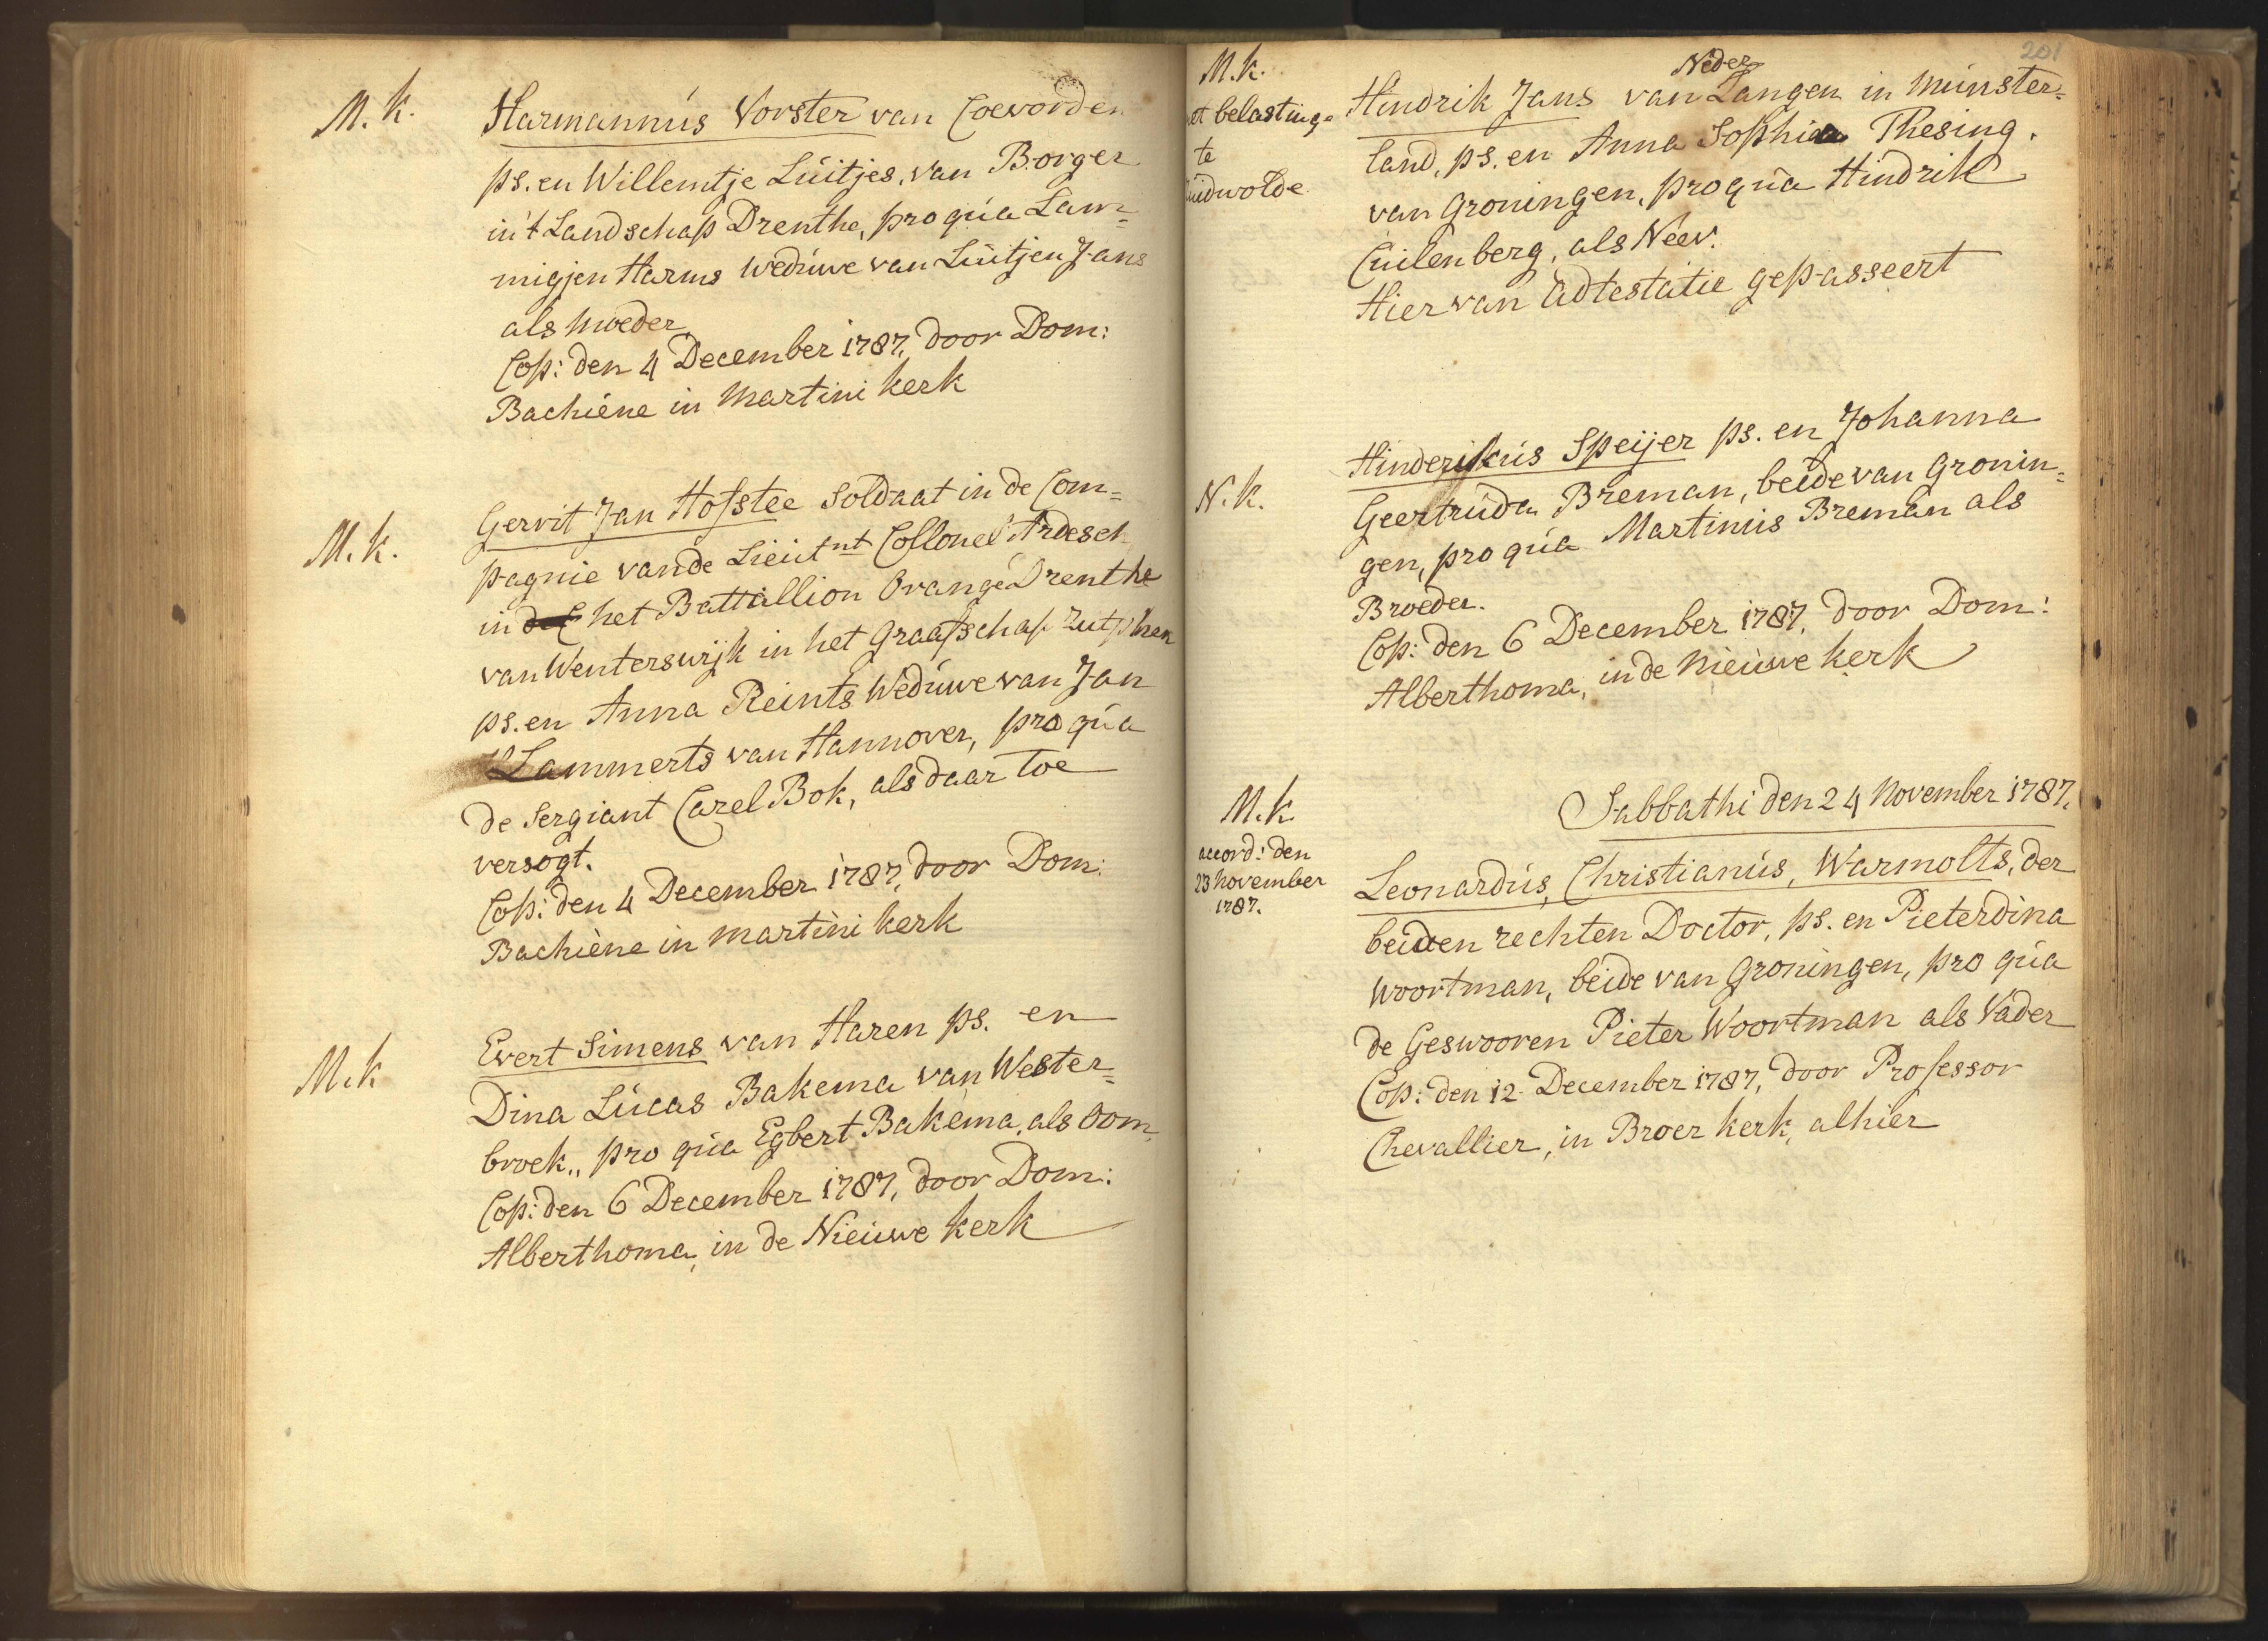 M. k.
Harmannús Vorster van Coevorden
ps. en Willemtje Lúitjes, van Borger
in 't Landschap Drenthe, pro qúa Lam=
migjen Harms Wedúwe van Lúitjen Jans
als Moeder
Cop: den 4 December 1787, door Dom:
Bachiene in Martini kerk
M. k.
Gerrit Jan Hofstee Soldaat in de Com=
pagnie van de Lieútnt Collonel Ardesch
in het Battallion Orange Drenthe
van Wenterswijk in het Graafschap Zutphen
ps. en Anna Reints Wedúwe van Jan
Lammerts van Hannover, pro qúa
de Sergiant Carel Bok, als daar toe
versogt.
Cop: den 4 December 1787, door Dom:
Bachiene in Martini kerk
M. k
Evert Simens van Haren ps. en
Dina Lúcas Bakema van Wester=
broek,, pro qúa Egbert Bakema, als Oom
Cop: den 6 December 1787, door Dom:
Alberthoma, in de Nieúwe kerk
201
M. k.
belastinge
te
Neder
Hindrik Jans van Langen in Múnster=
land, ps. en Anna Sophia Thesing.
van Groningen, pro qúa Hindrik
Cúilenberg, als Neev.
Hier van Adtestatie gepasseert
N. k.
Hinderikús Speijer ps. en Johanna
Geertrúda Breman, beide van Gronin=
gen, pro qúa Martinús Breman als
Broeder.
Cop: den 6 December 1787, door Dom:
Alberthoma, in de Nieúwe kerk
Sabbathi den 24 November 1787.
M. k.
accord: den
23 November
1787.
Leonardús, Christianús, Warmolts, der
beiden rechten Doctor, ps. en Pieterdina
Woortman, beide van Groningen, pro qúa
de Geswooren Pieter Woortman als Vader
Cop: den 12 December 1787, door Professor
Chevallier, in Broer kerk, alhier